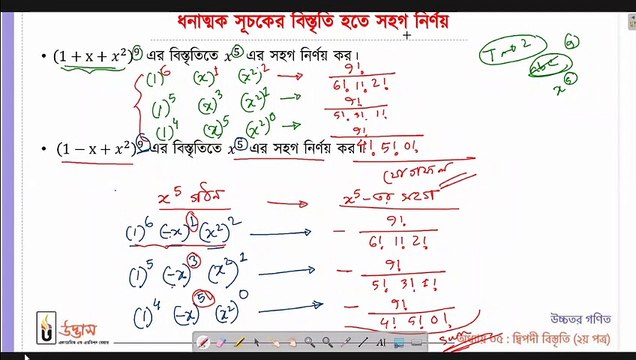 ধনাত্মক সূচকের বিস্তৃতি হতে সহগ নির্ণয়
• (1 + x + x²)⁹ এর বিস্তৃতিতে x⁵ এর সহগ নির্ণয় কর।
(1)⁶ (x)¹ (x²)² → 9!/6! 1! 2!
(1)⁵ (x)³ (x²)¹ → 9!/5! 3! 1!
(1)⁴ (x)⁵ (x²)⁰ → 9!/4! 5! 0!
যোগফল
• (1 − x + x²)⁹ এর বিস্তৃতিতে x⁵ এর সহগ নির্ণয় কর।
x⁵ গঠন → x⁵-এর সহগ
(1)⁶ (-x)¹ (x²)² → − 9!/6! 1! 2!
(1)⁵ (-x)³ (x²)¹ → − 9!/5! 3! 1!
(1)⁴ (-x)⁵ (x²)⁰ → − 9!/4! 5! 0!
উদ্ভাস
উচ্চতর গণিত
অধ্যায় ০৫ : দ্বিপদী বিস্তৃতি (২য় পত্র)